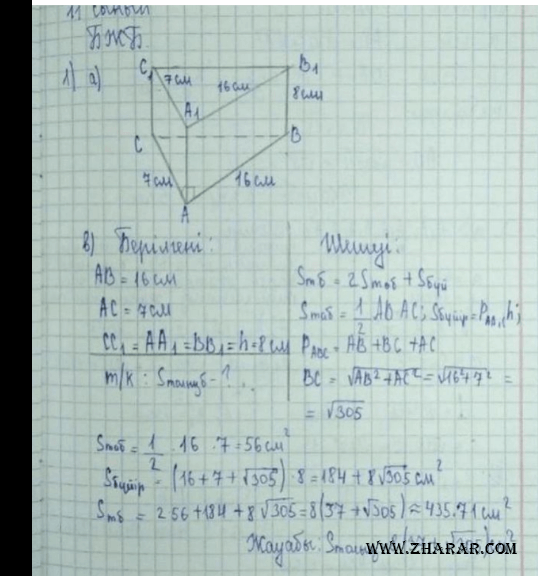 11 сынып
БЖБ
1) а)
C1 7см 16см B1
8см
A1
C B
7см 16см
A
в) Берілгені: Шешуі:
AB = 16см
AC = 7см
CC1 = AA1 = BB1 = h = 8см
т/к: Sтолықб - ?
Sтб = 2Sтаб + Sбүй
Sтаб = 1/2 AB AC; Sбүйір = PABC h;
PABC = AB + BC + AC
BC = √AB² + AC² = √16² + 7² =
= √305
Sтаб = 1/2 · 16 · 7 = 56см²
Sбүйір = (16 + 7 + √305) · 8 = 184 + 8√305 см²
Sтб = 2 56 + 184 + 8√305 = 8(37 + √305) ≈ 435.71 см²
Жауабы:
WWW.ZHARAR.COM